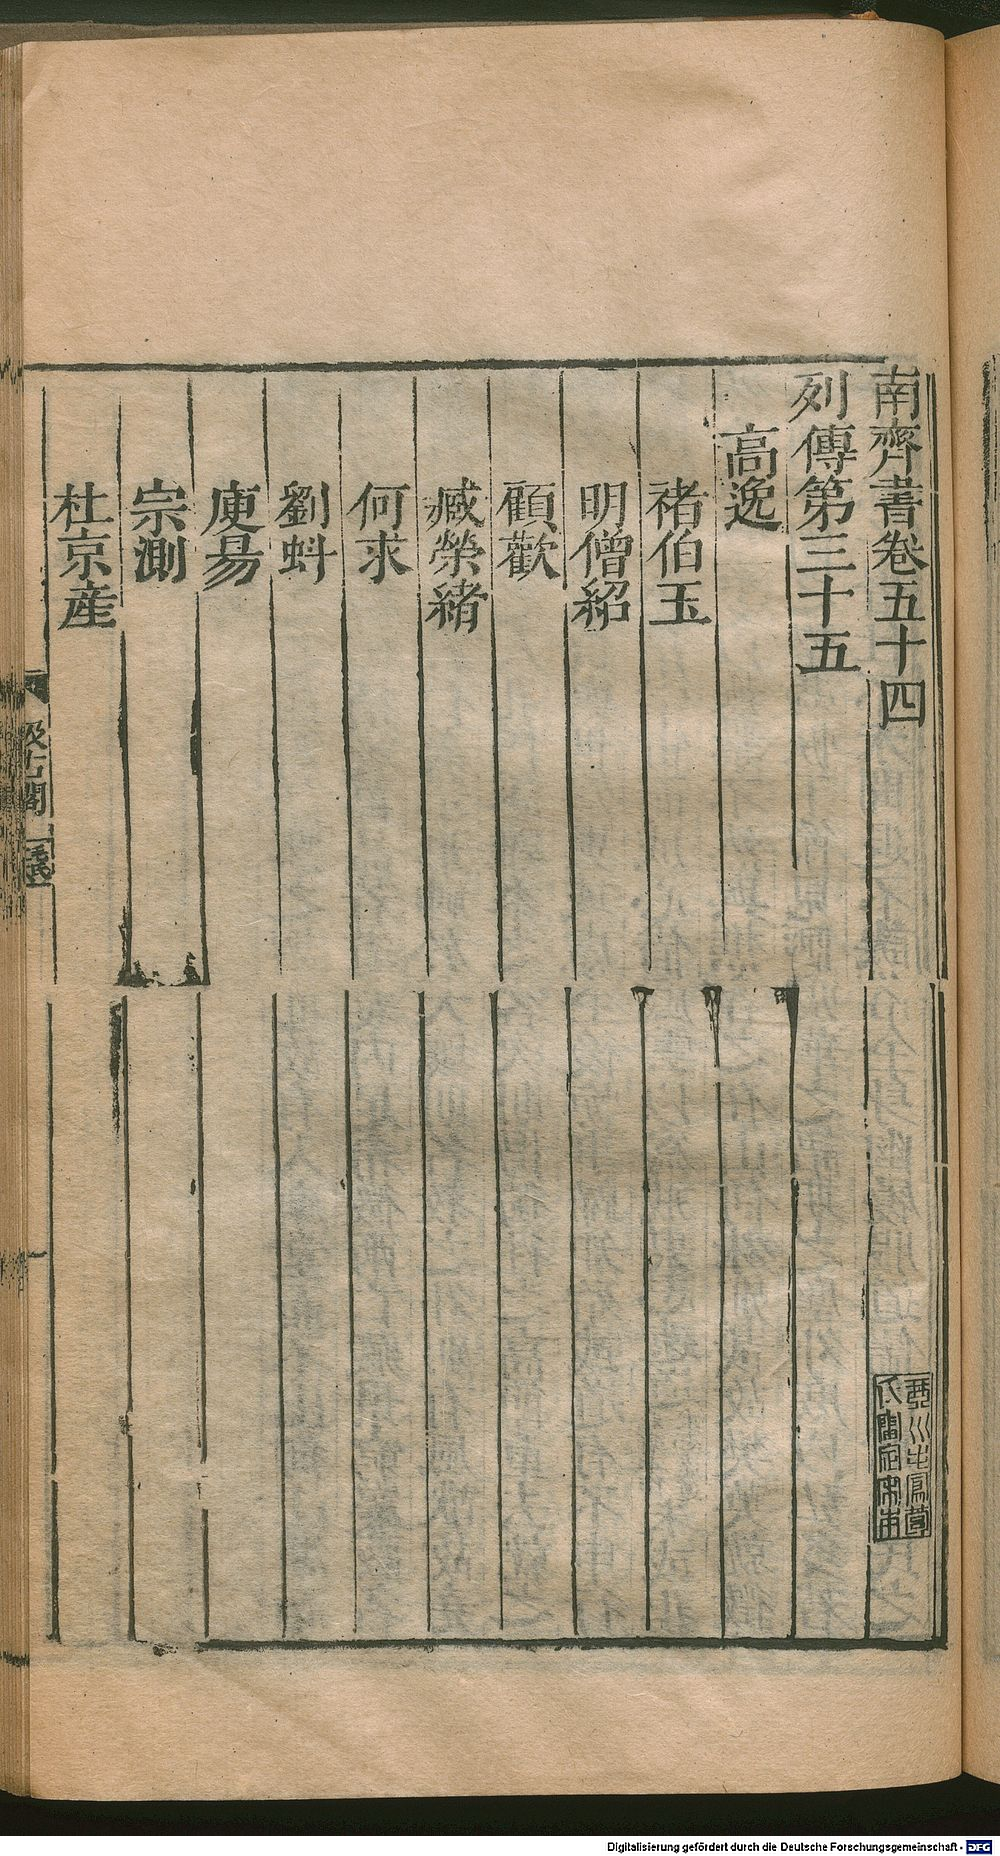 南齊書卷五十四
列傳第三十五
高逸
褚伯玉
明僧紹
顧歡
臧榮緒
何求
劉蚪
庾易
宗測
杜京產
汲古閣
毛氏
Digitalisierung gefördert durch die Deutsche Forschungsgemeinschaft - DFG